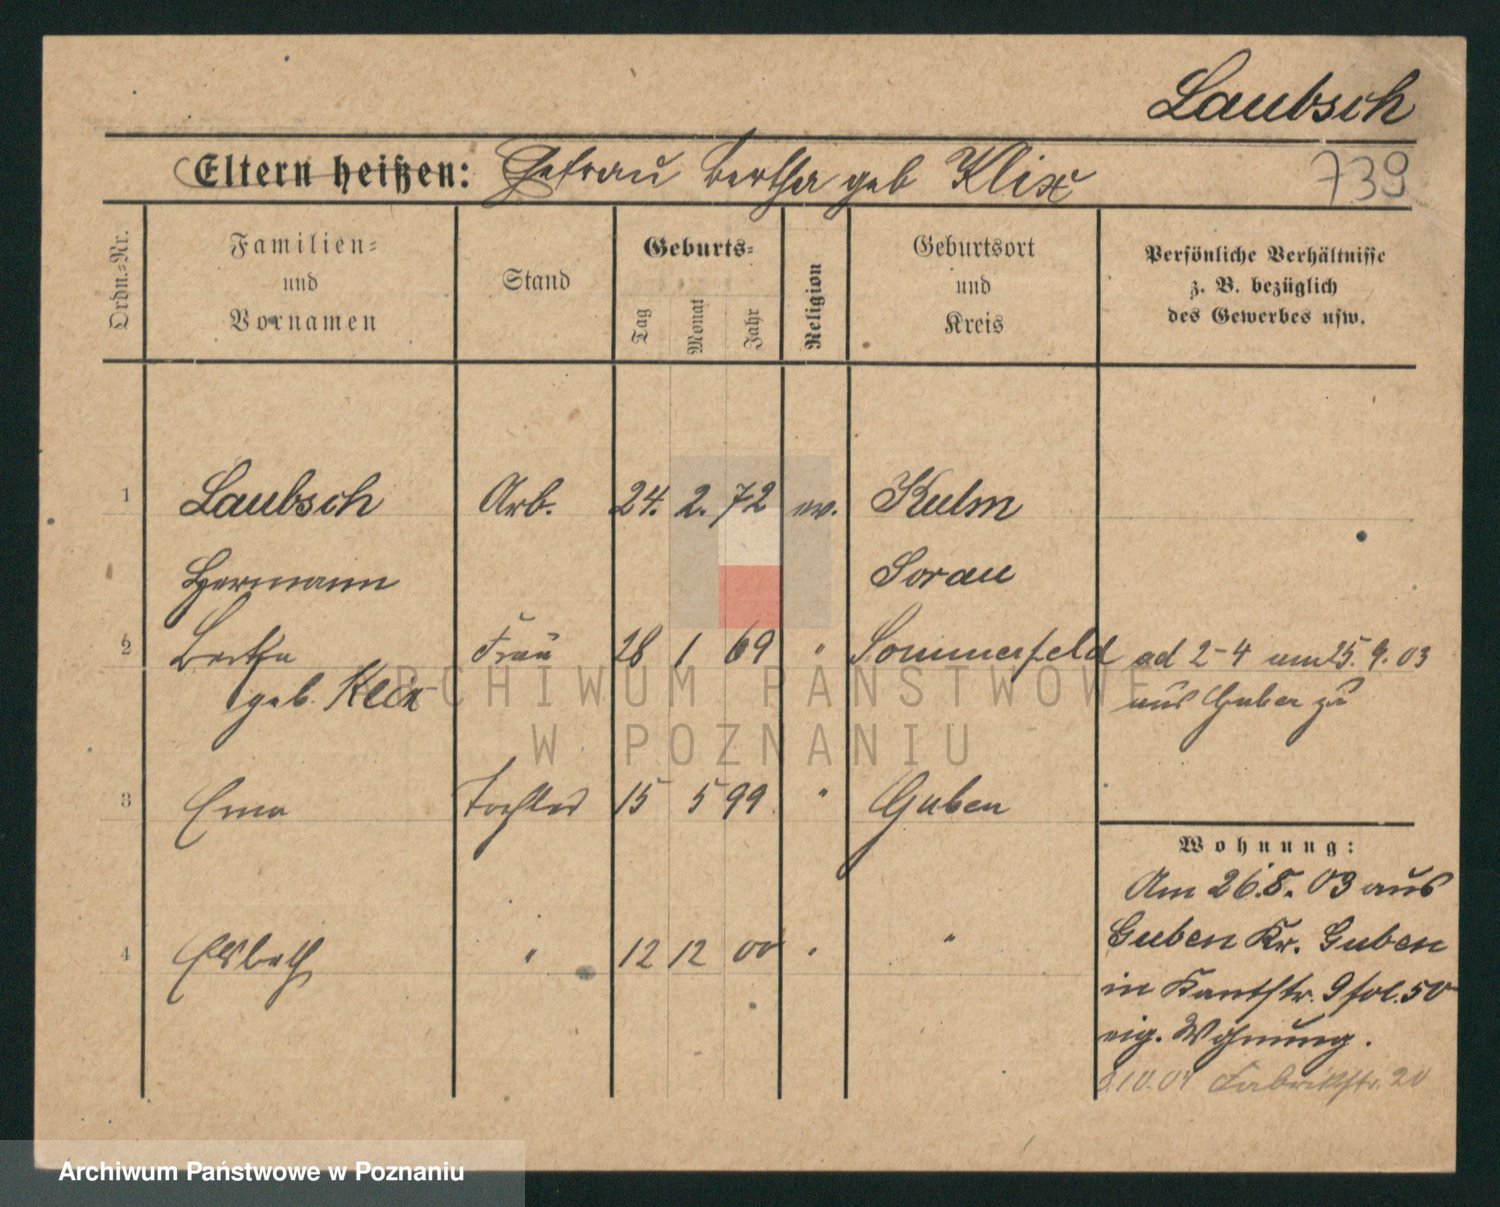 Laubsch
Eltern heißen: Ehefrau Bertha geb Klix
739
Ordn.=Nr.
Familien=
und
Vornamen
Stand
Geburts=
Tag
Monat
Jahr
Religion
Geburtsort
und
Kreis
Persönliche Verhältnisse
z. B. bezüglich
des Gewerbes usw.
1 Laubsch Arb. 24. 2. 72 ev. Kulm
Hermann Sorau
2 Bertha Frau 28 1 69 " Sommerfeld ad 2-4 am 25. 9. 03
geb. Klix aus Guben zu
3 Erna Tochter 15 5 99 " Guben
4 Elsbeth " 12 12 00 " "
Wohnung:
Am 26.8. 03 aus
Guben Kr. Guben
in Kantstr. 9 fol. 50
eig. Wohnung.
.10.04 Fabrikstr. 20
ARCHIWUM PAŃSTWOWE
W POZNANIU
Archiwum Państwowe w Poznaniu